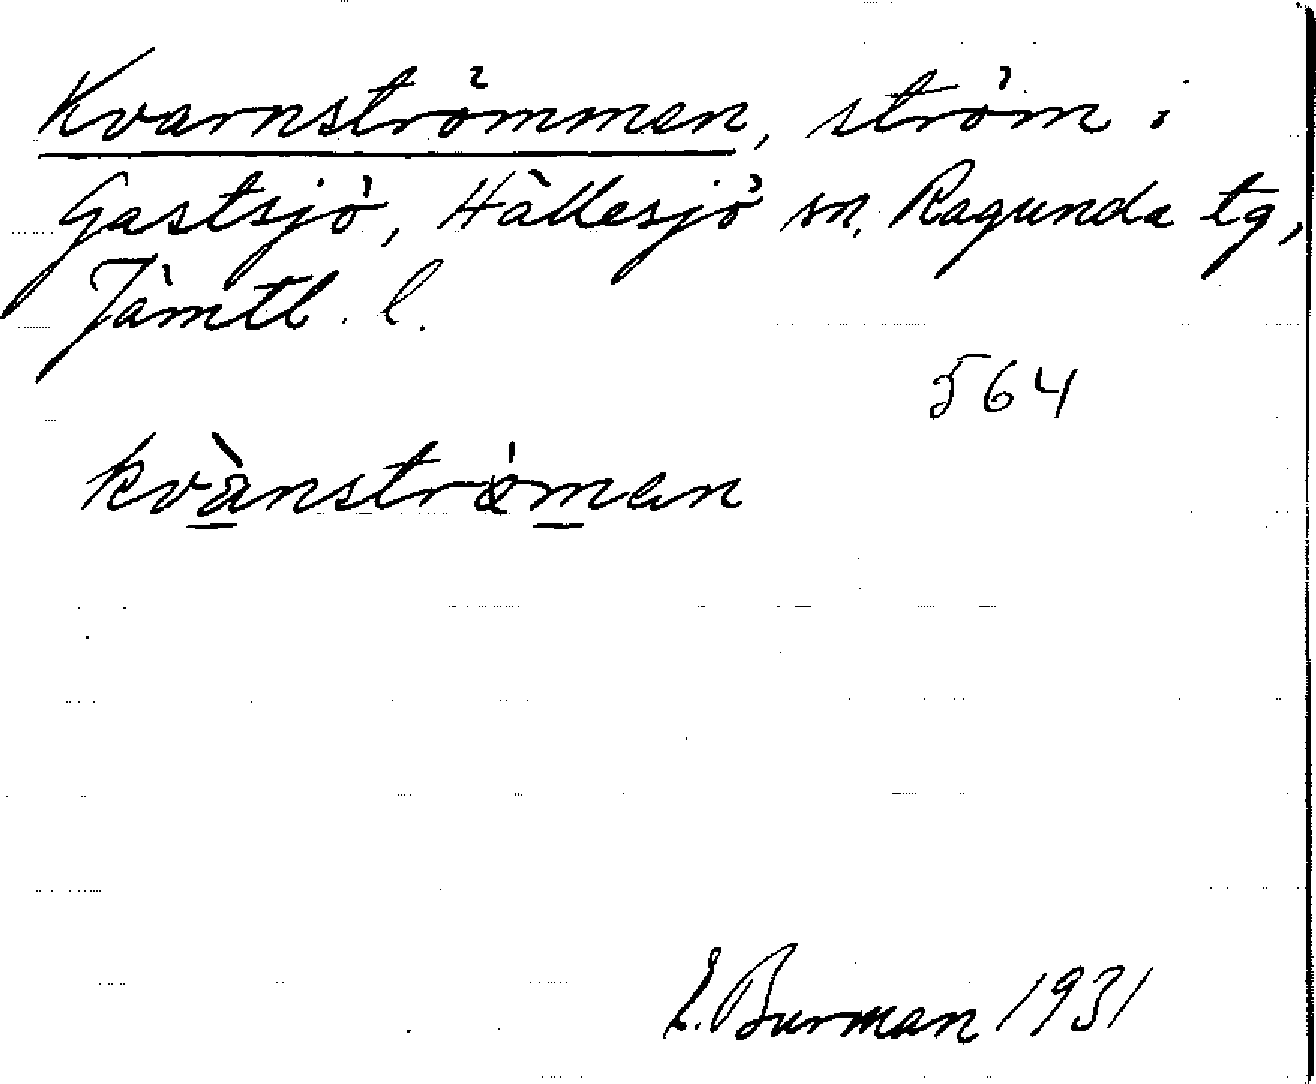 Kvarnströmmen, ström i
Gastsjö, Hällesjö sn, Ragunda tg,
Jämtl. l.
564
kvànströman
E. Burman 1931